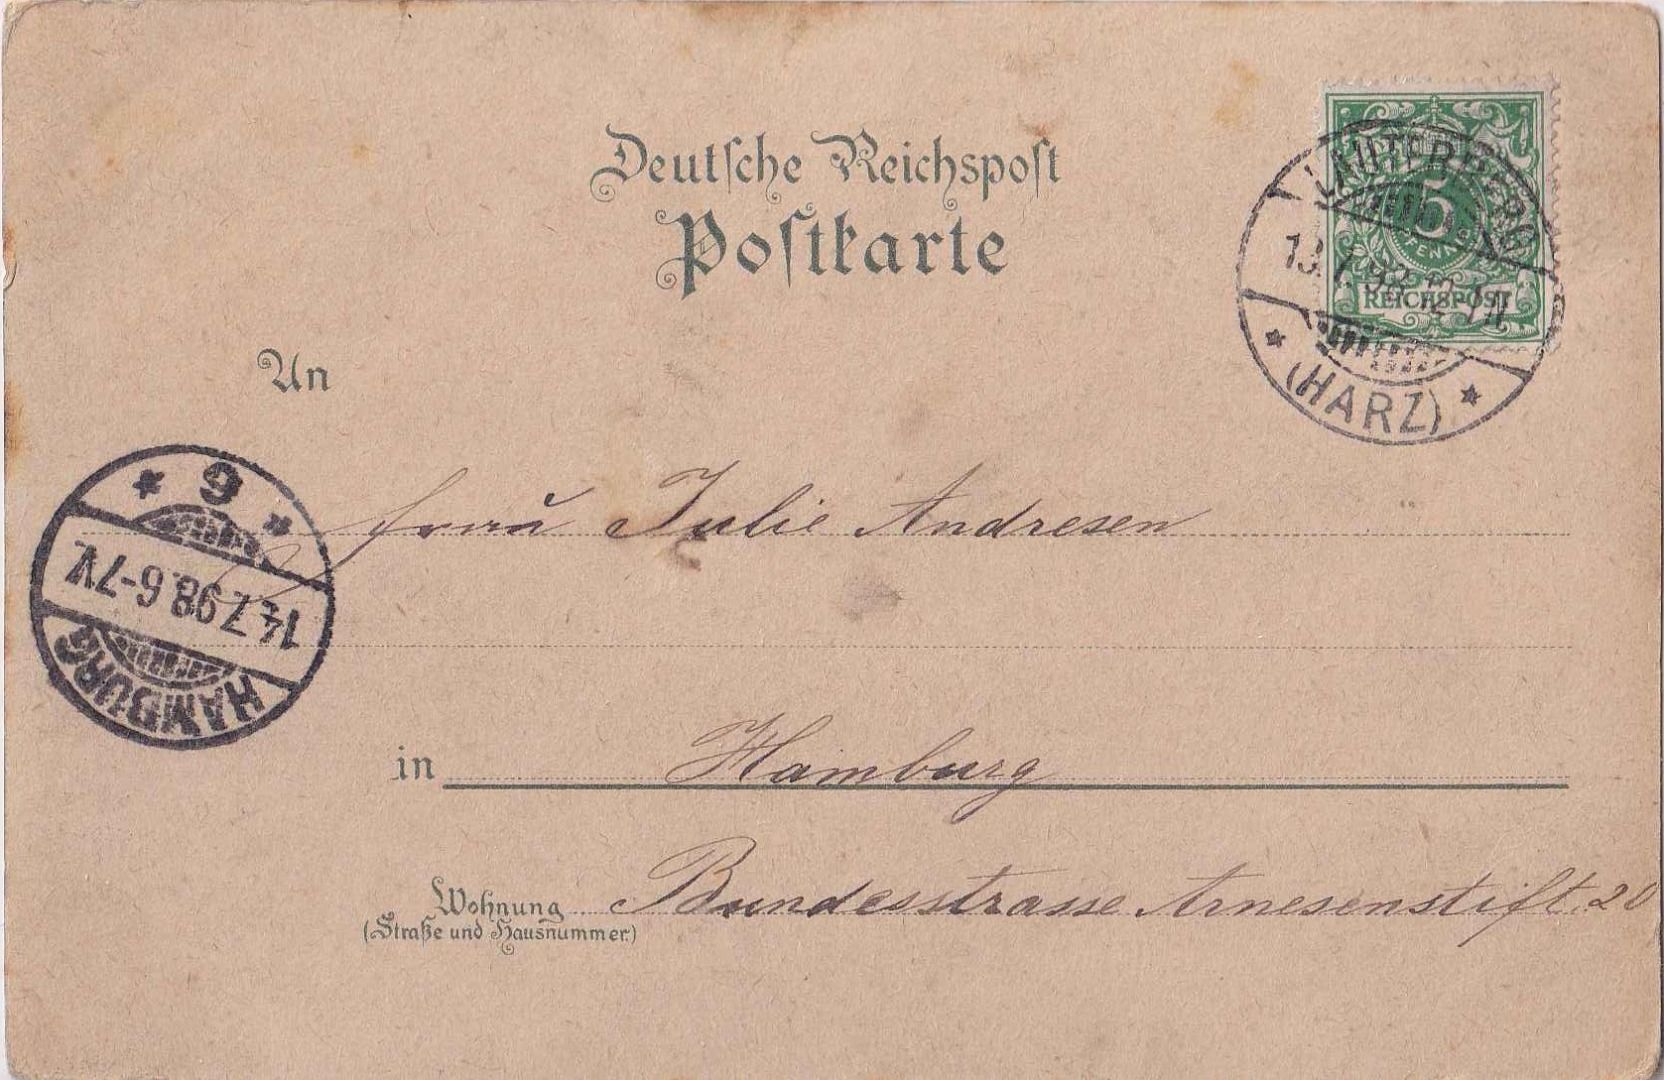 Deutsche Reichspost
Postkarte
5
PFENNIG
REICHSPOST
LAUTERBERG
13.7.98.12-1N
* (HARZ) *
An
Frau Julie Andresen
* 9 *
14.7.98.6-7V.
HAMBURG
in Hamburg
Wohnung
(Straße und Hausnummer.)
Bundesstrasse Arnesenstift. 20